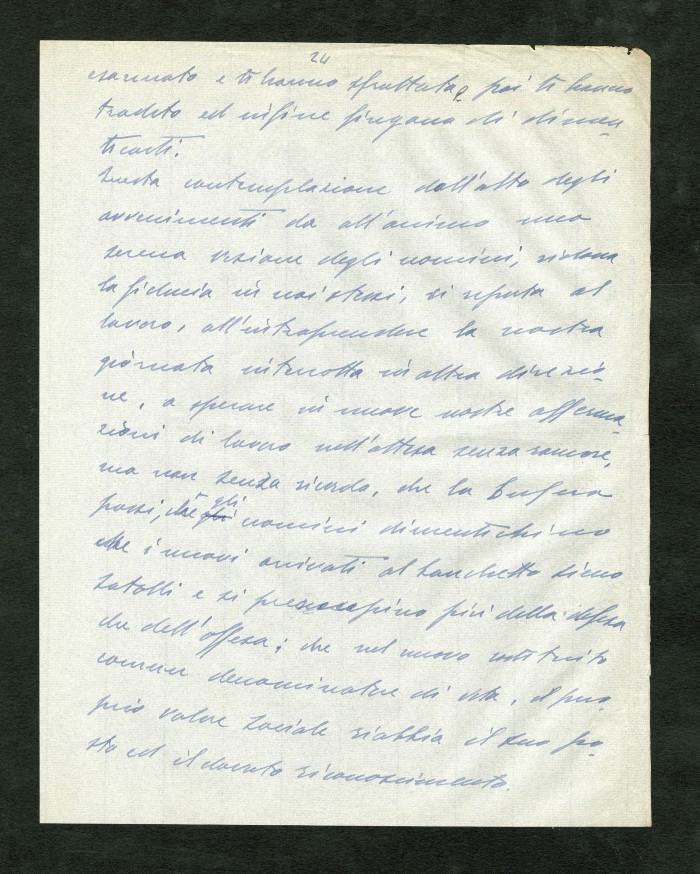 24
esaminato e ti hanno sfruttato e poi ti hanno
tradito ed infine fingono di dimen-
ticarti.
Questa contemplazione dall'alto degli
avvenimenti da all'animo una
serena visione degli uomini, ridona
la fiducia in noi stessi, ci riporta al
lavoro, all'intraprendere la nostra
giornata interrotta in altra direzio-
ne, a sperare in nuove nostre afferma-
zioni di lavoro nell'attesa senza rancore,
ma non senza ricordo, che la bufera
passi, che gli uomini dimentichino
che i nuovi arrivati al banchetto sieno
satolli e si preoccupino più della difesa
che dell'offesa; che nel nuovo costituito
comune denominatore di vita, il pro-
prio valore sociale riabbia il suo po-
sto ed il dovuto riconoscimento.